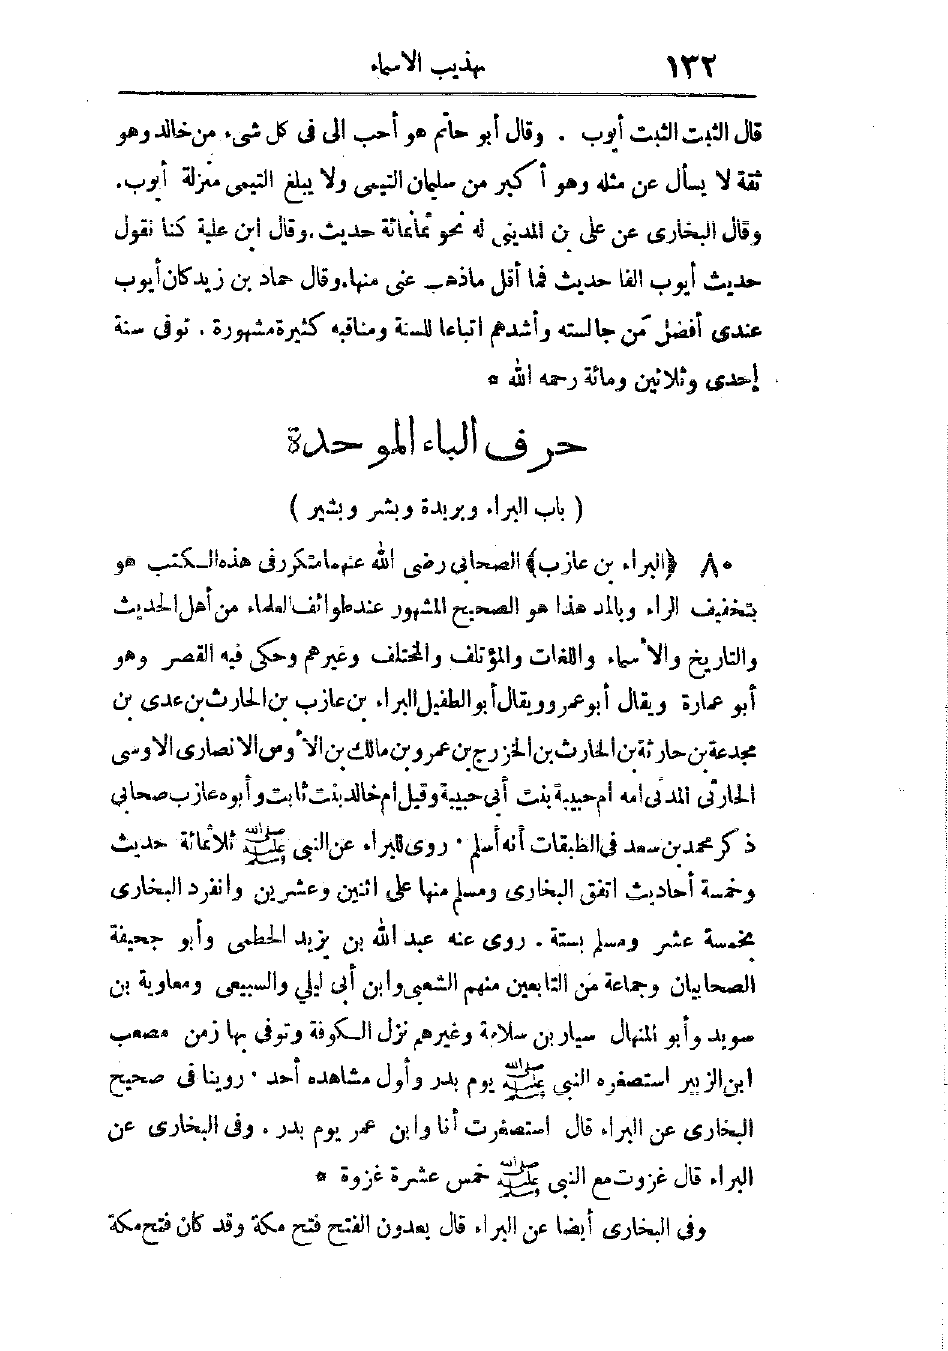 ١٣٢ تهذيب الاسماء
قال الثبت الثبت أيوب . وقال أبو حاتم هو أحب الى فى كل شىء من خالد وهو
ثقة لا يسأل عن مثله وهو أكبر من سليمان التيمى ولا يبلغ التيمى منزلة أيوب.
وقال البخارى عن على بن المدينى له نحو ثمانمائة حديث . وقال ابن علية كنا نقول
حديث أيوب الفا حديث فما أقل ماذهب عنى منها . وقال حماد بن زيد كان أيوب
عندى أفضل من جالسته وأشدهم اتباعا للسنة ومناقبه كثيرة مشهورة . توفى سنة
إحدى وثلاثين ومائة رحمه الله *
حرف الباء الموحدة
( باب البراء وبريدة وبشر وبشير )
٨٠ ﴿البراء بن عازب﴾ الصحابى رضى الله عنهما متكرر فى هذه الكتب هو
بتخفيف الراء وبالمد هذا هو الصحيح المشهور عند طوائف العلماء من أهل الحديث
والتاريخ والأسماء واللغات والمؤتلف والمختلف وغيرهم وحكى فيه القصر وهو
أبو عمارة ويقال أبو عمرو ويقال أبو الطفيل البراء بن عازب بن الحارث بن عدى بن
مجدعة بن حارثة بن الحارث بن الخزرج بن عمرو بن مالك بن الأوس الانصارى الاوسى
الحارثى المدنى امه أم حبيبة بنت أبى حبيبة وقيل ام خالد بنت ثابت وأبوه عازب صحابى
ذكر محمد بن سعد فى الطبقات أنه أسلم . روى للبراء عن النبى ﷺ ثلاثمائة حديث
وخمسة أحاديث اتفق البخارى ومسلم منها على اثنين وعشرين وانفرد البخارى
بخمسة عشر ومسلم بستة . روى عنه عبد الله بن يزيد الخطمى وأبو جحيفة
الصحابيان وجماعة من التابعين منهم الشعبى وابن أبى ليلي والسبيعى ومعاوية بن
سويد وأبو المنهال سيار بن سلامة وغيرهم نزل الكوفة وتوفى بها زمن مصعب
ابن الزبير استصغره النبى ﷺ يوم بدر وأول مشاهده أحد . روينا فى صحيح
البخارى عن البراء قال استصغرت أنا وابن عمر يوم بدر . وفى البخارى عن
البراء قال غزوت مع النبى ﷺ خمس عشرة غزوة *
وفى البخارى أيضا عن البراء قال يعدون الفتح فتح مكة وقد كان فتح مكة